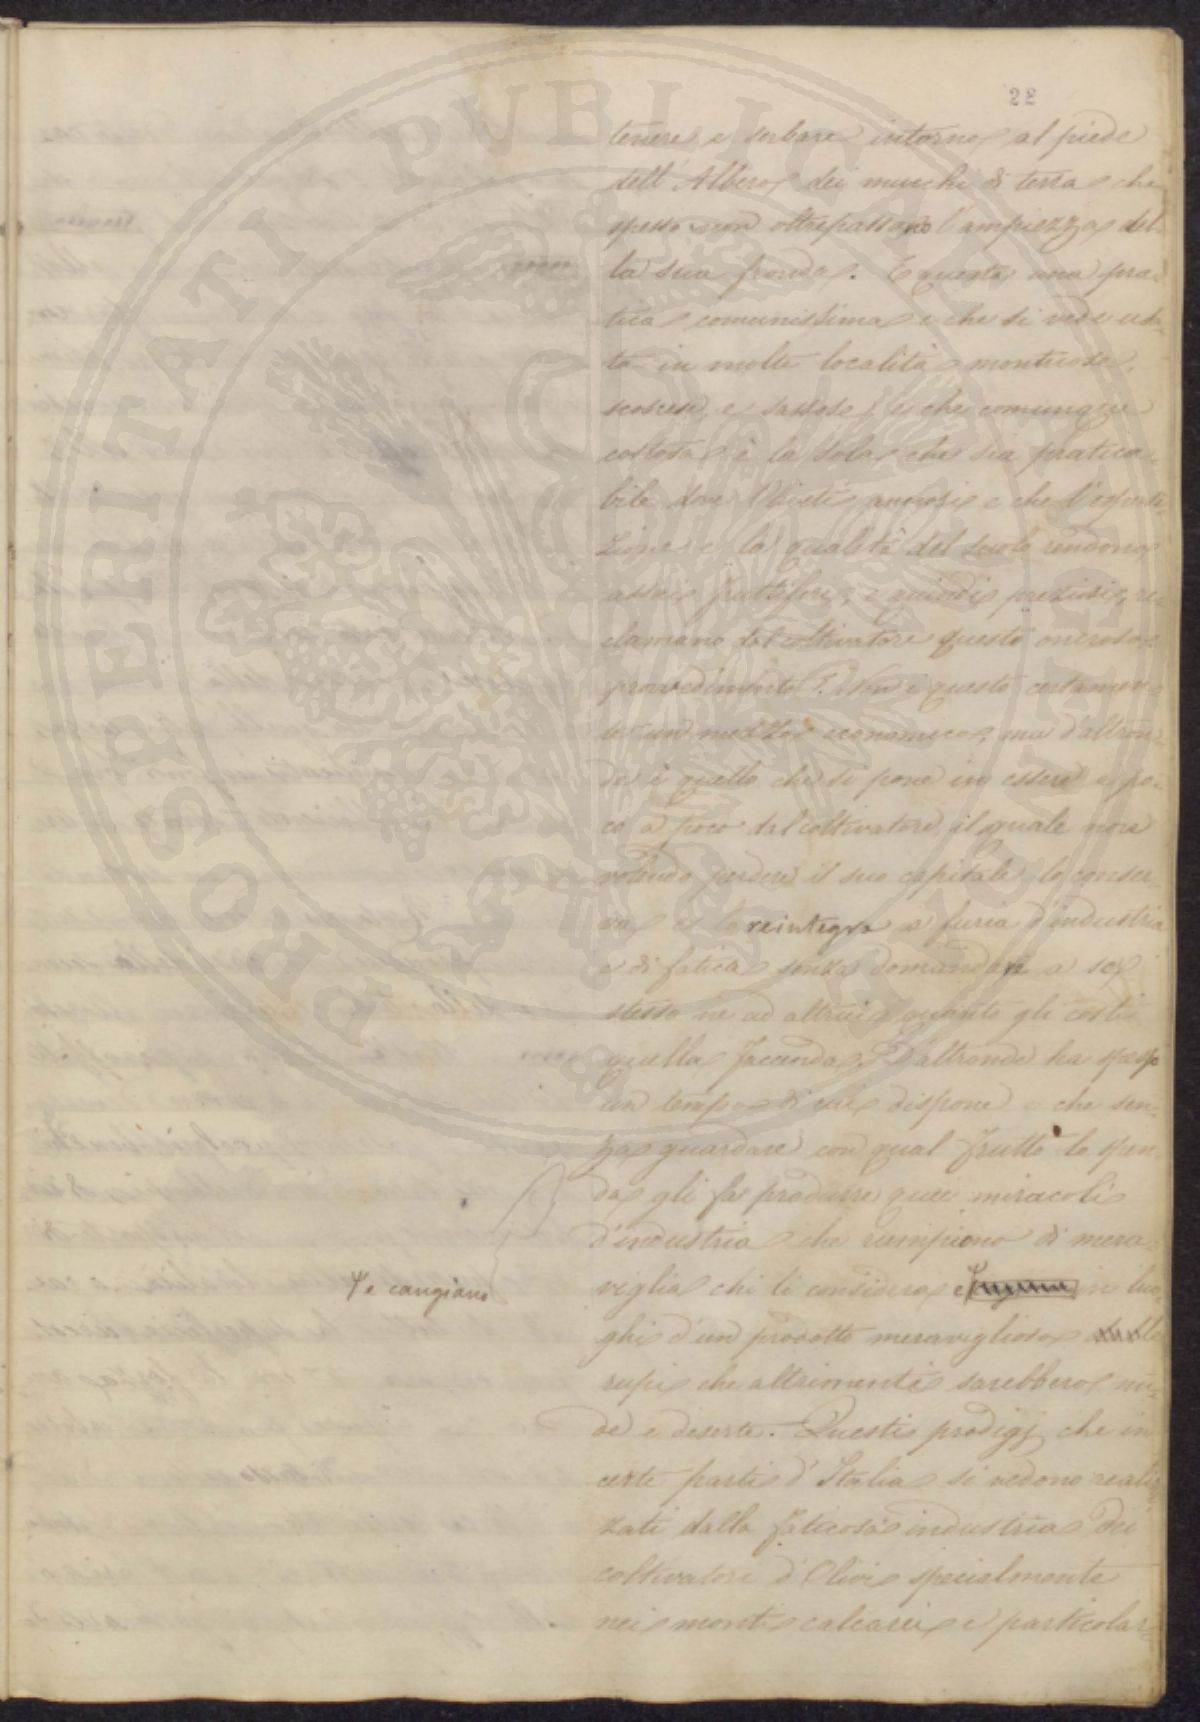 22
tenere e serbare intorno al piede
dell'Albero dei mucchi di terra che
spesso non oltrepassano l'ampiezza del-
la sua fronda. E questa una pra-
tica comunissima e che si vede usa-
ta in molte località montuose,
scoscese, e sassose, e che comunque
costosa è la sola che sia pratica-
bile dove Oliveti annosi e che l'esposi-
zione e la qualità del suolo rendono
assai fruttiferi, e quindi preziosi, re-
clamano dal coltivatore questo oneroso
provvedimento. Non è questo certamen-
te un mezzo economico, ma d'altron-
de è quello che si pone in essere a po-
co a poco dal coltivatore, il quale non
volendo perdere il suo capitale lo conser-
va e lo reintegra a furia d'industria
e di fatica senza domandare a se
stesso ne ad altrui quanto gli costi
quella faccenda. D'altronde ha spesso
un tempo di cui dispone e che sen-
za guardare con qual frutto lo spen
da, gli fa produrre quei miracoli
d'industria che riempiono di mera-
viglia chi li considera e in luo-
e cangiano
ghi d'un prodotto meraviglioso
rupi che altrimenti sarebbero nu-
de e deserte. Questi prodigj che in
certe parti d'Italia si vedono realiz-
zati dalla faticosa industria dei
coltivatori d'Olivi specialmente
nei monti calcarei e particolar-
PROSPERITATI PUBLICAE AUGENDAE